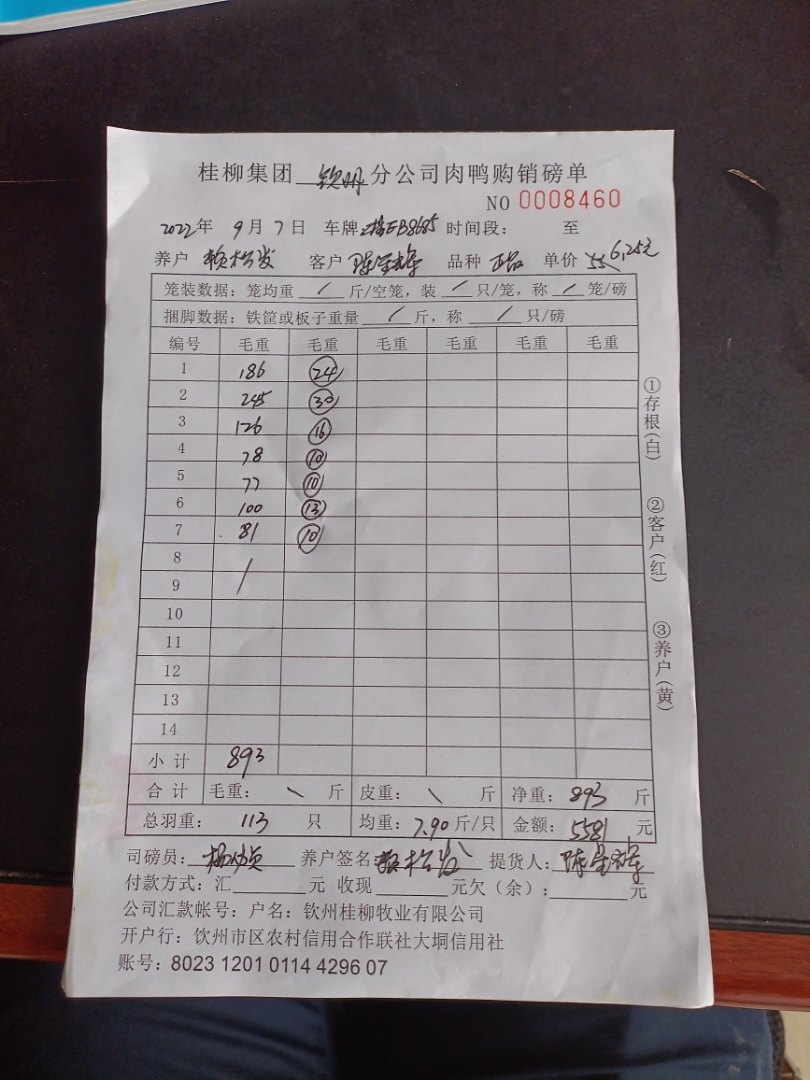 桂柳集团 钦州 分公司肉鸭购销磅单
NO 0008460
2022年 9月 7日 车牌 B8685 时间段： 至
养户 赖松发 客户 品种 正品 单价 6.25元
笼装数据：笼均重 / 斤/空笼，装 / 只/笼，称 / 笼/磅
捆脚数据：铁筐或板子重量 / 斤，称 / 只/磅
编号 毛重 毛重 毛重 毛重 毛重 毛重
1 186 24
2 245 30
3 126 16
4 78 10
5 77 10
6 100 13
7 81 10
8
9 /
10
11
12
13
14
小计 893
合计 毛重： \ 斤 皮重： \ 斤 净重：893 斤
总羽重： 113 只 均重：7.90 斤/只 金额：5581 元
司磅员： 养户签名 赖松发 提货人：
付款方式：汇 元 收现 元欠（余）： 元
公司汇款帐号：户名：钦州桂柳牧业有限公司
开户行：饮州市区农村信用合作联社大垌信用社
账号：8023 1201 0114 4296 07
①存根（白）
②客户（红）
③养户（黄）